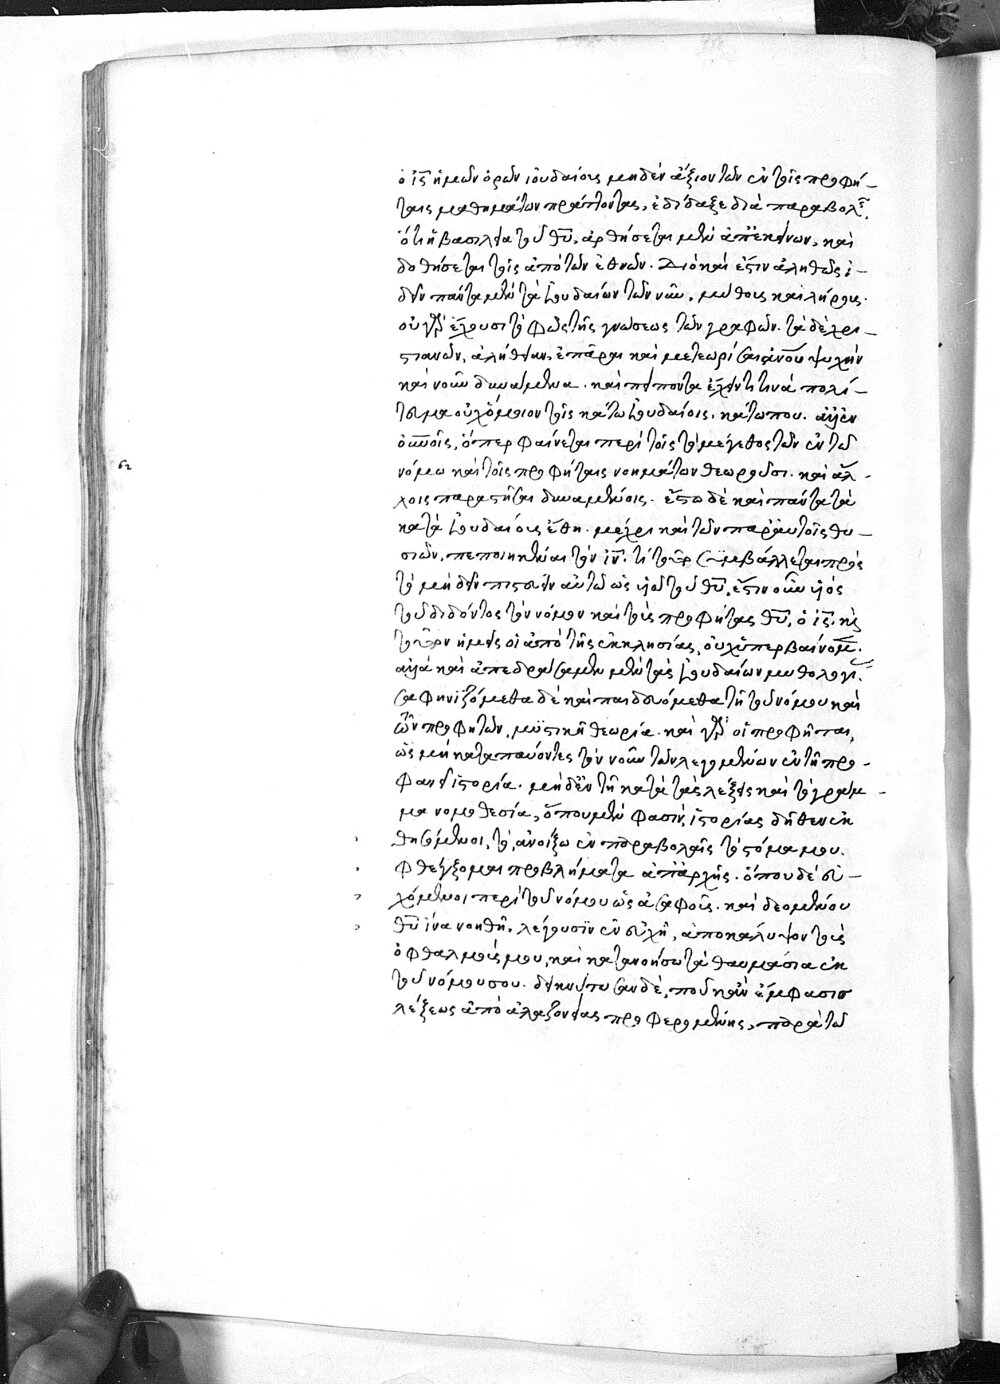 ὁ ἰ̅ς̅ ἡμῶν ὁρῶν ἰουδαίους μηδὲν ἄξιον τῶν ἐν τοῖς προφή-
ταις μαθημάτων πράττοντας, ἐδίδαξε διὰ παραβολῆς,
ὅτι ἡ βασιλεία τοῦ θ̅υ̅, ἀρθήσεται μὲν ἀπ' ἐκείνων, καὶ
δοθήσεται τοῖς ἀπὸ τῶν ἐθνῶν. Διὸ καὶ ἔστιν ἀληθῶς ἰ-
δεῖν πάντα μὲν τὰ ἰουδαίων τῶν νῦν, μύθους καὶ λήρους.
οὐ γὰρ ἔχουσι τὸ φῶς τῆς γνώσεως τῶν γραφῶν. τὰ δὲ χρι-
στιανῶν, ἀλήθειαν, ἐπᾶραι καὶ μετεωρίσαι ἀν̅ο̅υ̅ ψυχὴν
καὶ νοῦν δυνάμενα. καὶ πείθοντα ἔχειν τι τινὰ πολί-
τευμα οὐχ ὅμοιον τοῖς κάτω ἰουδαίοις, κάτω που. ἀλλ' ἐν
οὐ̅ν̅οῖς, ὅπερ φαίνεται περὶ τοῖς τὸ μέγεθος τῶν ἐν τῶ
νόμω καὶ τοῖς προφήταις νοημάτων θεωροῦσι. καὶ ἄλ-
λοις παραστῆσαι δυναμένοις. ἔστω δὲ καὶ πάντα τὰ
κατὰ ἰουδαίους ἔθη. μέχρι καὶ τῶν παρ' αὐτοῖς θυ-
σιῶν, πεποιηκέναι τὸν ἰ̅ν̅. τί τοῦτο συμβάλλεται πρὸς
τὸ μὴ δεῖν πιστεύειν αὐτῶ ὡς υἱῶ τοῦ θ̅υ̅. ἔστιν οὖν υἱὸς
τοῦ διδόντος τὸν νόμον καὶ τοὺς προφήτας θ̅υ̅, ὁ ἰ̅ς̅. καὶ
τοῦτον ἡμεῖς οἱ ἀπὸ τῆς ἐκκλησίας, οὐχ ὑπερβαίνομεν.
ἀλλὰ καὶ ἀπεδράσαμεν μὲν τὰς ἰουδαίων μυθολογίας.
σωφρονιζόμεθα δὲ καὶ παιδευόμεθα τῆ τοῦ νόμου καὶ
τῶν προφητῶν, μυστικῆ θεωρία. καὶ γὰρ οἱ προφῆται,
ὡς μὴ καταπαύοντες τὸν νοῦν τῶν λεγομένων ἐν τῆ προ-
φανεῖ ἱστορία. μηδ' ἐν τῆ κατὰ τὰς λέξεις καὶ τὸ γράμ-
μα νομοθεσία, ὅπου μέν φασιν, ἱστορίας δῆθεν ἐκ
θησόμενοι, τὸ, ἀνοίξω ἐν παραβολαῖς τὸ στόμα μου.
φθέγξομαι προβλήματα ἀπ' ἀρχῆς. ὅπου δὲ εὐ-
χόμενοι περὶ τοῦ νόμου ὡς ἀσαφοῦς. καὶ δεομένου
θ̅υ̅ ἵνα νοηθῆ. λέγουσιν ἐν εὐχῆ, ἀποκάλυψον τοὺς
ὀφθαλμούς μου, καὶ κατανοήσω τὰ θαυμάσια ἐκ
τοῦ νόμου σου. δεικνύτωσαν δὲ, ποῦ κἂν ἔμφασις
λέξεως ἀπὸ ἀλαζονείας προφερομένης, παρὰ τῶ